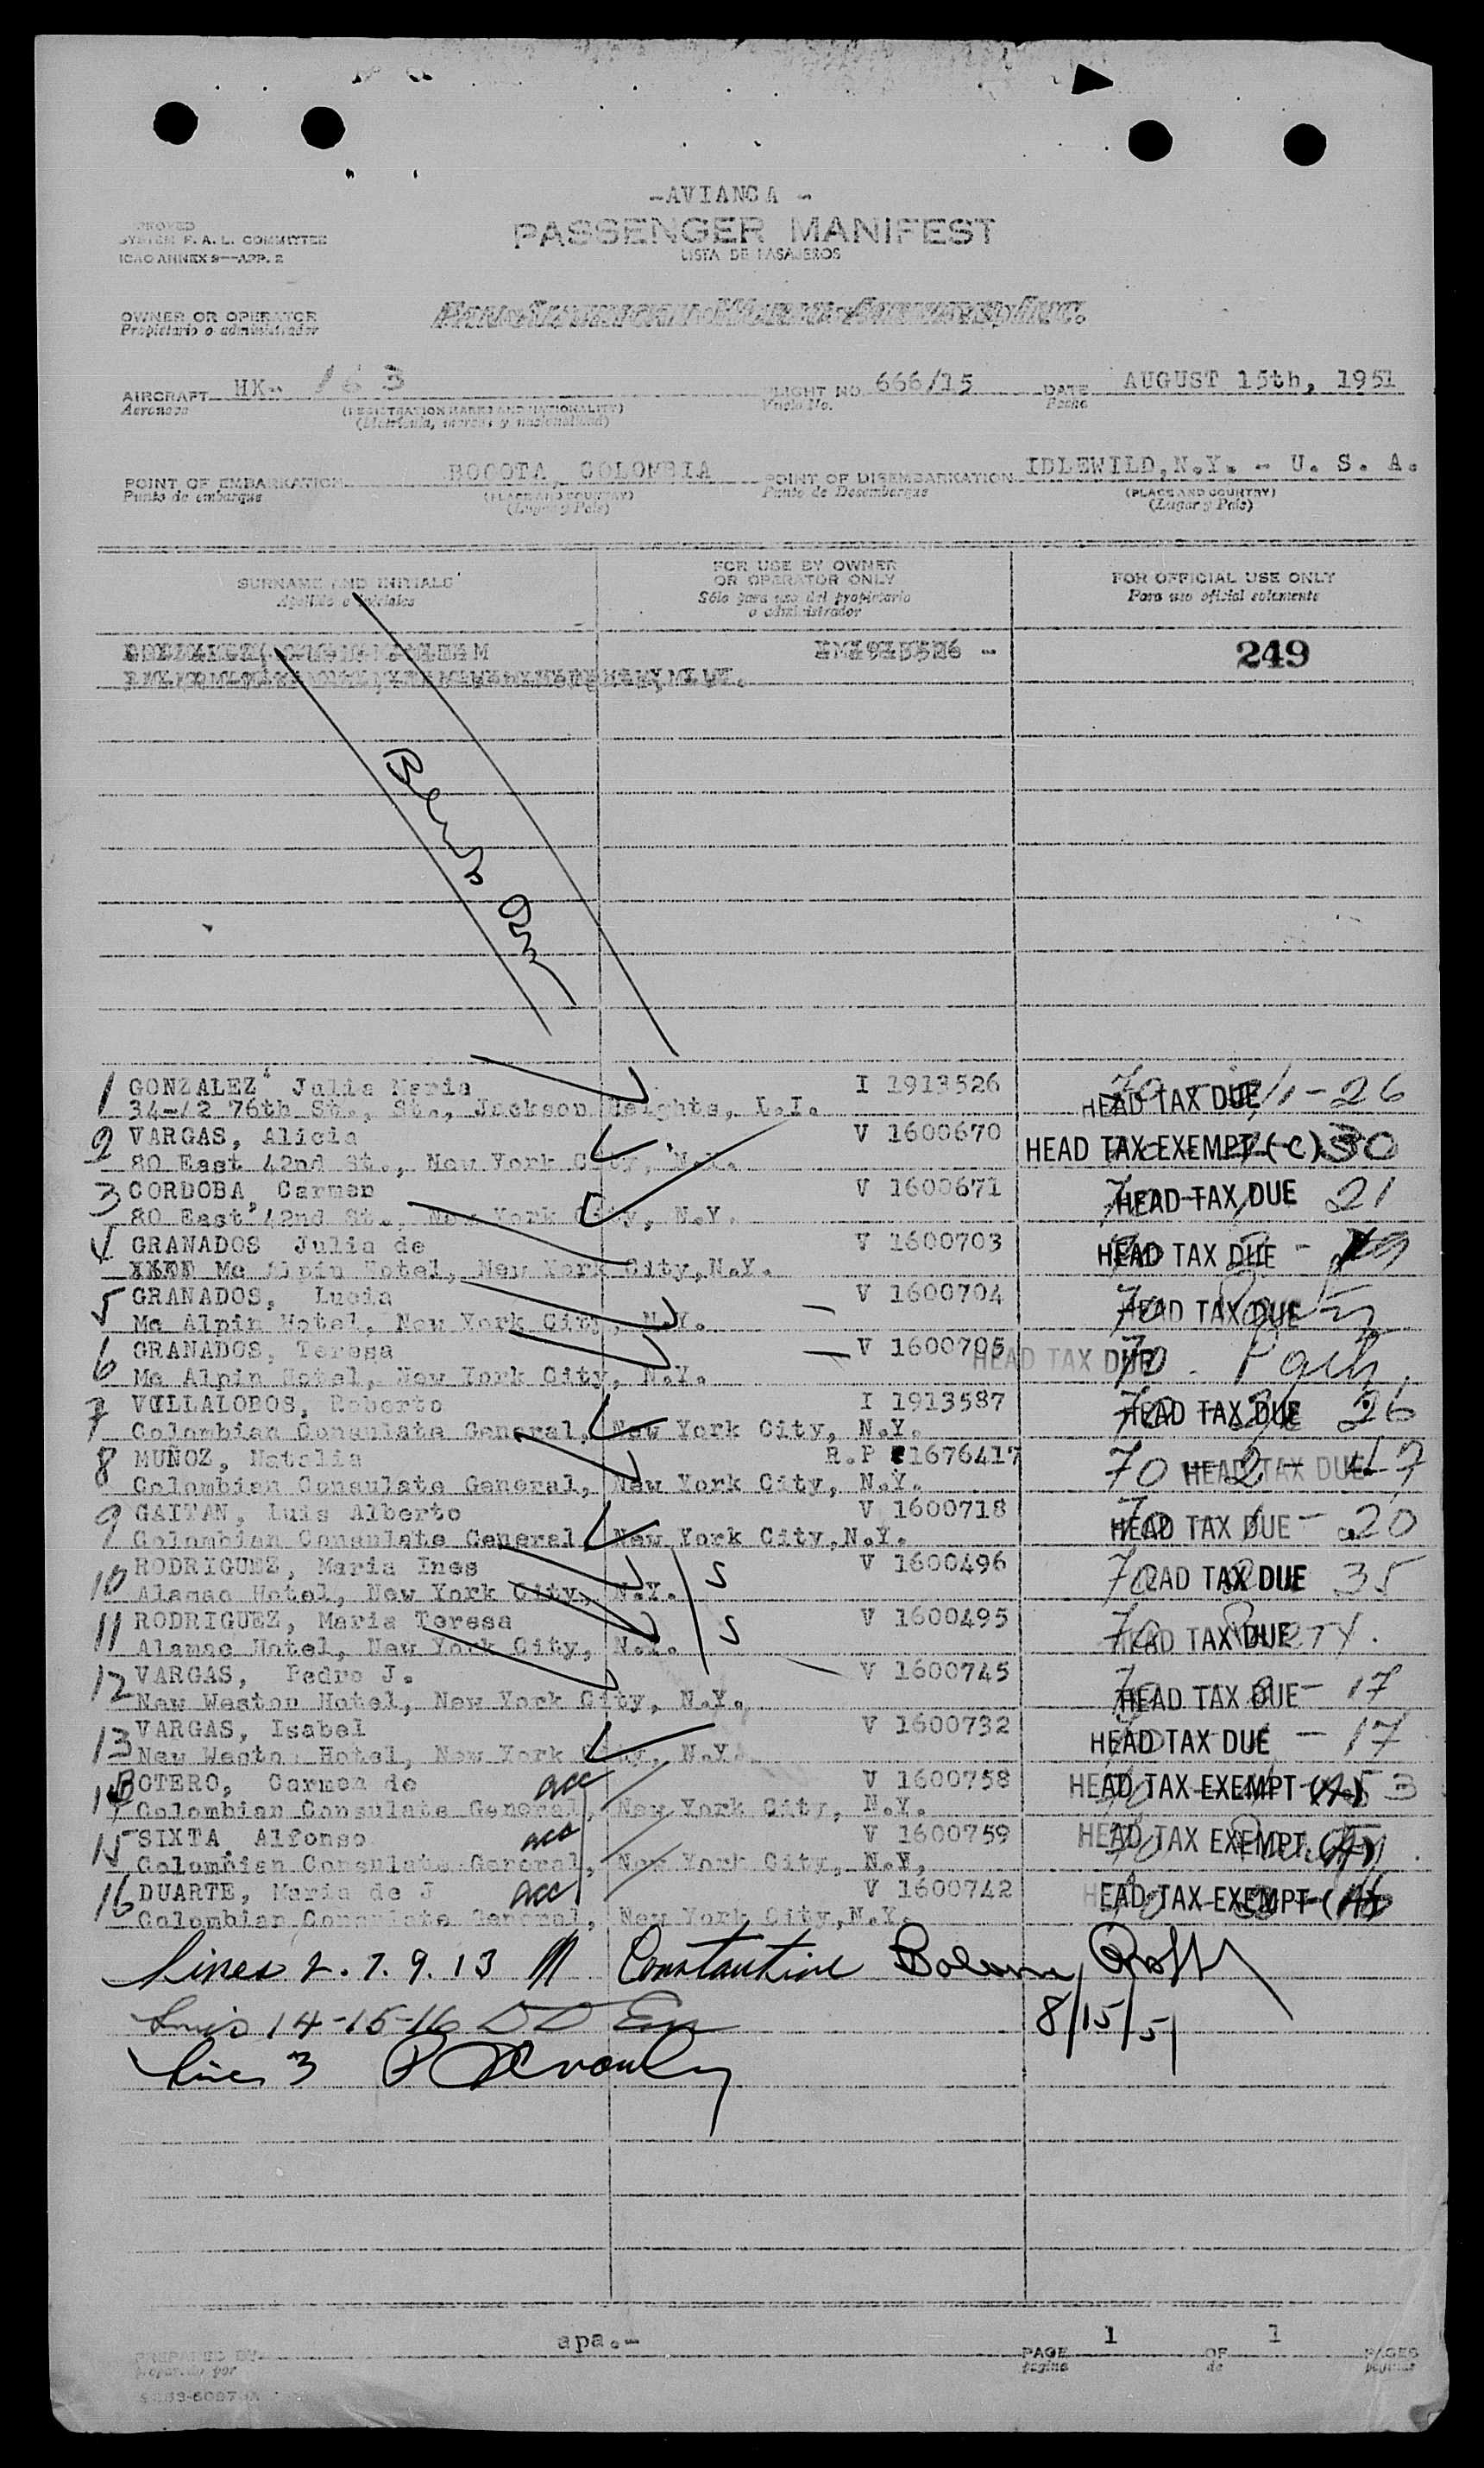 -AVIANCA -
PASSENGER MANIFEST
LISTA DE PASAJEROS
SYSTEM F. A. L. COMMITTEE
ICAO ANNEX 9—APP. 2
OWNER OR OPERATOR
Propietario o administrador
AIRCRAFT HK- 163 FLIGHT NO. 666/15 DATE AUGUST 15th, 1951
Aeronave (REGISTRATION MARKS AND NATIONALITY) Vuelo No. Fecha
(Matrícula, marcas y nacionalidad)
POINT OF EMBARKATION BOGOTA, COLOMBIA POINT OF DISEMBARKATION IDLEWILD, N.Y. - U. S. A.
Punto de embarque (PLACE AND COUNTRY) Punto de Desembarque (PLACE AND COUNTRY)
(Lugar y País) (Lugar y País)
SURNAME AND INITIALS FOR USE BY OWNER OR OPERATOR ONLY FOR OFFICIAL USE ONLY
Apellido e iniciales Sólo para uso del propietario o administrador Para uso oficial solamente
249
1 GONZALEZ Julia Maria I 1913526
34-42 76th St., St., Jackson Heights, L.I. HEAD TAX DUE 26
2 VARGAS, Alicia V 1600670
80 East 42nd St., New York City, N.Y. HEAD TAX EXEMPT (C) 30
3 CORDOBA, Carmen V 1600671
80 East 42nd St., New York City, N.Y. HEAD TAX DUE 21
GRANADOS Julia de V 1600703
Mc Alpin Hotel, New York City, N.Y. HEAD TAX DUE
5 GRANADOS, Lucia V 1600704
Mc Alpin Hotel, New York City, N.Y. HEAD TAX DUE
6 GRANADOS, Teresa V 1600705
Mc Alpin Hotel, New York City, N.Y. HEAD TAX DUE 70
7 VILLALOBOS, Roberto I 1913587
Colombian Consulate General, New York City, N.Y. HEAD TAX DUE 26
8 MUÑOZ, Natalia R.P 1676417
Colombian Consulate General, New York City, N.Y. 70 HEAD TAX DUE
9 GAITAN, Luis Alberto V 1600718
Colombian Consulate General New York City, N.Y. HEAD TAX DUE - 20
10 RODRIGUEZ, Maria Ines V 1600496
Alamac Hotel, New York City, N.Y. S 70 HEAD TAX DUE 35
11 RODRIGUEZ, Maria Teresa V 1600495
Alamac Hotel, New York City, N.Y. S HEAD TAX DUE
12 VARGAS, Pedro J. V 1600745
New Weston Hotel, New York City, N.Y. HEAD TAX DUE - 17
13 VARGAS, Isabel V 1600732
New Weston Hotel, New York City, N.Y. HEAD TAX DUE - 17
14 BOTERO, Carmen de acc V 1600758
Colombian Consulate General, New York City, N.Y. HEAD TAX EXEMPT (A)
15 SIXTA, Alfonso acc V 1600759
Colombian Consulate General, New York City, N.Y, HEAD TAX EXEMPT (A)
16 DUARTE, Maria de J acc V 1600742
Colombian Consulate General, New York City, N.Y. HEAD TAX EXEMPT (A)
Lines 2. 7. 9. 13 Constantine
14-15-16 8/15/51
Line 3
apa.-
PREPARED BY PAGE 1 OF 1 PAGES
Preparado por página de páginas